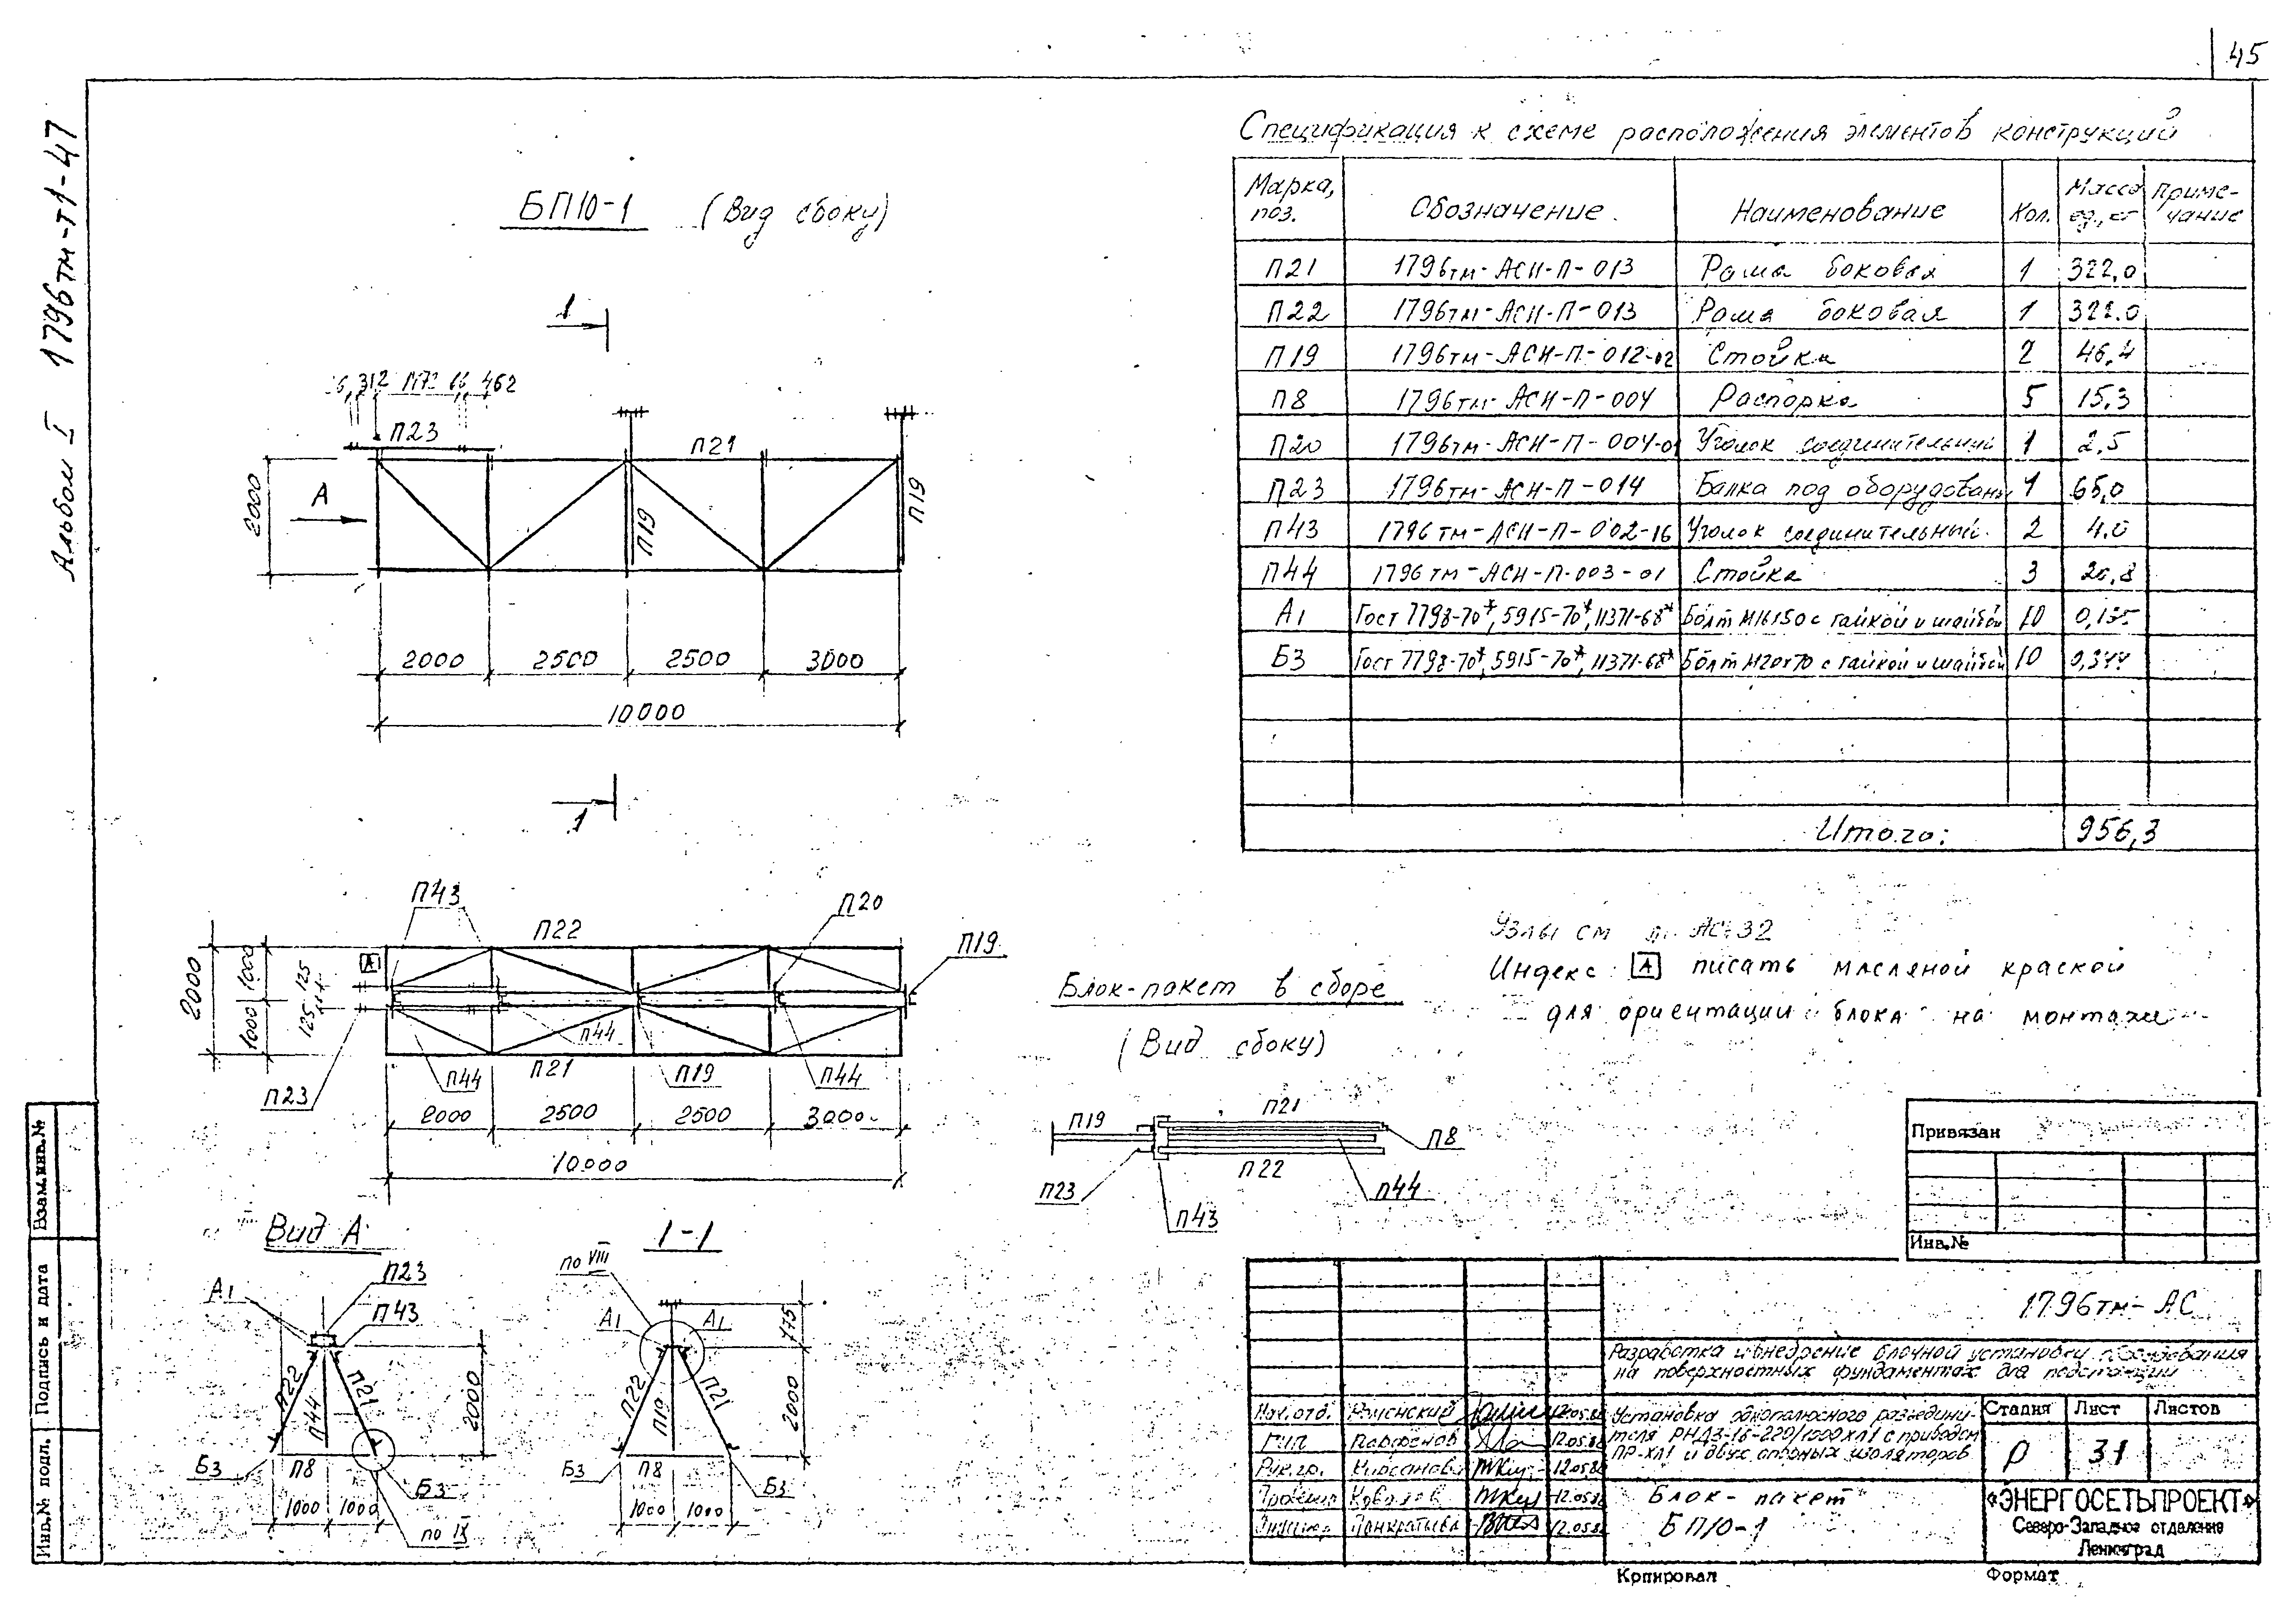 45
Альбом I 1796тм-т1-47
БП10-1 (Вид сбоку)
1
312
462
П23
П21
2000
А
П19
П19
2000 2500 2500 3000
10000
1
Спецификация к схеме расположения элементов конструкций
Марка, поз. Обозначение Наименование Кол. Масса ед., кг Приме-чание
П21 1796тм-АСИ-П-013 Рама боковая 1 322,0
П22 1796тм-АСИ-П-013 Рама боковая 1 322.0
П19 1796тм-АСИ-П-012-02 Стойка 2 46,4
П8 1796тм-АСИ-П-004 Распорка 5 15,3
П20 1796тм-АСИ-П-004-01 Уголок соединительный 1 2,5
П23 1796тм-АСИ-П-014 Балка под оборудовань 1 65,0
П43 1796тм-АСИ-П-002-16 Уголок соединительный 2 4.0
П44 1796тм-АСИ-П-003-01 Стойка 3
А1 Гост 7798-70*, 5915-70*, 11371-68* Болт с гайкой и шайбой 10
Б3 Гост 7798-70*, 5915-70*, 11371-68* Болт М20х70 с гайкой и шайбой 10
Итого: 956,3
П43
П22
П20
П19
А
2000
1000
1000
125
125
П44
П23
П44
П21
П19
П44
2000 2500 2500 3000
10000
Узлы см л. АС-32
Индекс А писать масляной краской
для ориентации блока на монтаже
Блок-пакет в сборе
(Вид сбоку)
П19
П21
П8
П22
П23
П44
П43
Вид А
А1
П23
П43
П22
П44
П21
2000
Б3
П8
Б3
1000 1000
по IX
1-1
по VIII
А1
А1
775
П22
П19
П21
2000
Б3
П8
Б3
1000 1000
Привязан
Инв.№
Взам.инв.№
Подпись и дата
Инв.№ подл.
1796тм-АС
Разработка и внедрение блочной установки оборудования
на поверхностных фундаментах для подстанций
Нач.отд. 12.05.88
ГИП Парфенов 12.05.88
Рук.гр. Кирсанова 12.05.88
Ковалев 12.05.88
Панкратьева 12.05.88
Установка однополюсного разъедини-
теля РНДЗ-1б-220/1000ХЛ1 с приводом
ПР-ХЛ1 и двух опорных изоляторов
Стадия Лист Листов
Р 31
Блок-пакет
БП10-1
«ЭНЕРГОСЕТЬПРОЕКТ»
Северо-Западное отделение
Ленинград
Копировал
Формат